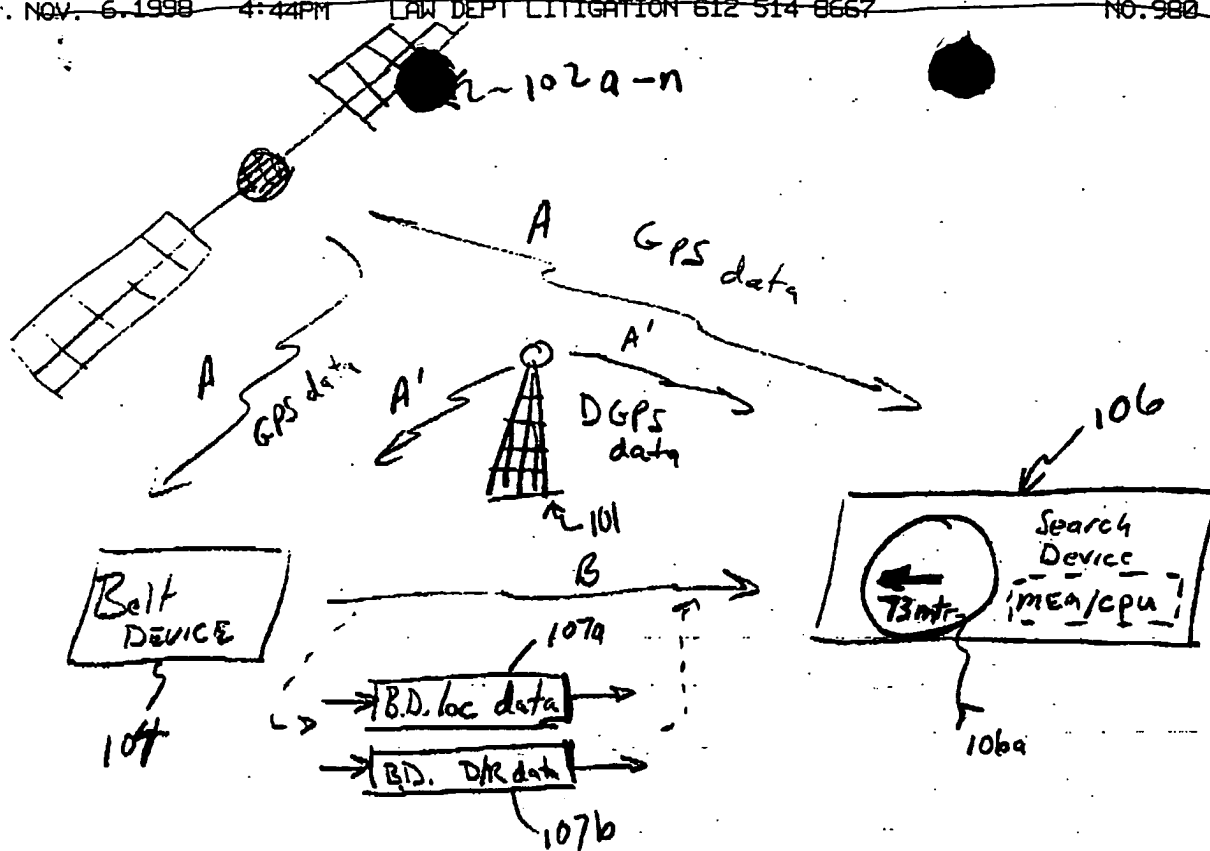 . NOV. 6.1998 4:44PM LAW DEPT LITIGATION 612 514 8667 NO.980
102 a-n
A
GPS data
A
GPS data
A'
A'
DGPS data
101
106
Search Device
MEM/CPU
73mtr
106a
Belt DEVICE
104
B
107a
B.D. loc data
B.D. D/R data
107b